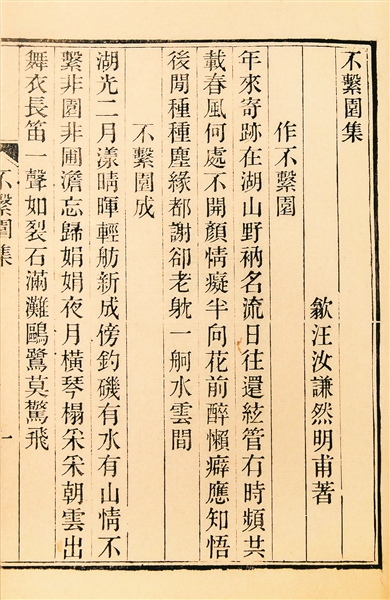 不繫園集
歙汪汝謙然明甫著
作不繫園
年來寄跡在湖山野衲名流日往還絃管有時頻共
載春風何處不開顏情癡半向花前醉懶癖應知悟
後閒種種塵緣都謝卻老躭一舸水雲間
不繫園成
湖光二月漾晴暉輕舫新成傍釣磯有水有山情不
繫非園非圃澹忘歸娟娟夜月橫琴榻采采朝雲出
舞衣長笛一聲如裂石滿灘鷗鷺莫驚飛
不繫園集
一